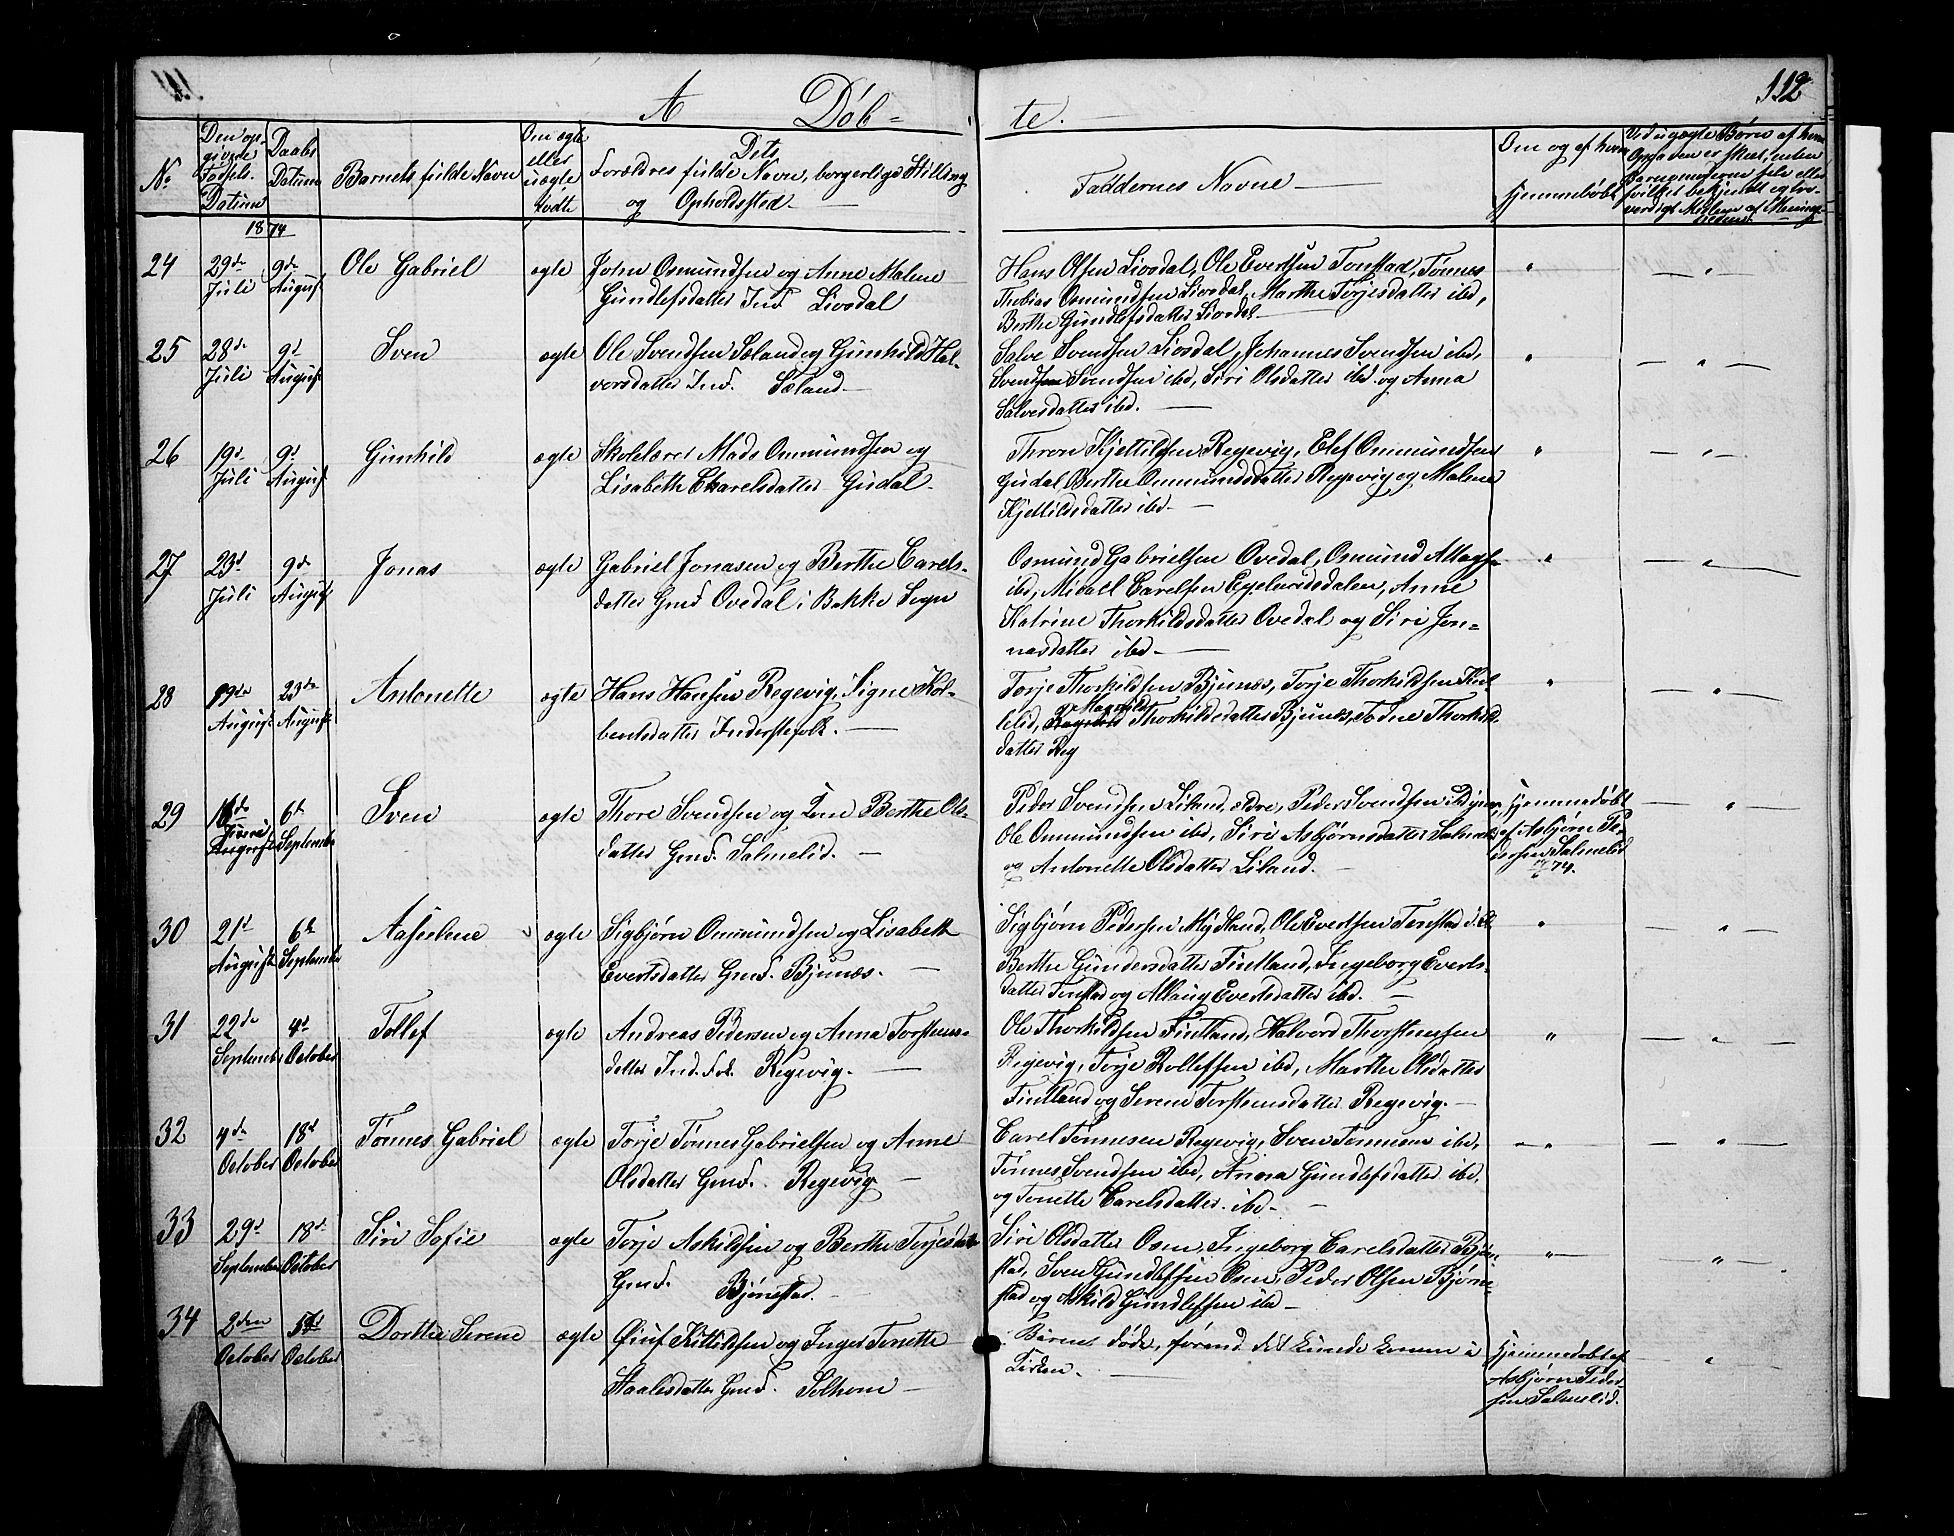 112
A Døb- te.
No
Den op-
givne
Fødsels-
Datum
Daabs
Datum
Barnets fulde Navn
Om ægte
eller
uægte
fødte
Dets
Forældres fulde Navn, borgerlige Stilling
og Opholdsted.
Faddernes Navne
Om og af hvem
hjemmedøbt
Ved uægte Børn af hvem
1874
24 29de Juli 9de August Ole Gabriel ægte John Osmundsen og Anne Malene
Gundlefsdatter Ind. Liosdal
Hans Olsen Liosdal, Ole Evertsen Tonstad, Tønnes
Thobias Osmundsen Liosdal, Marthe Torjesdatter ibd,
Berthe Gundlefsdatter Liosdal.
25 28de Juli 9d August Sven ægte Ole Svendsen Sæland og Gunhild Hal-
vorsdatter Ind. Sæland
Salve Svendsen Liosdal, Johannes Svendsen ibd,
Svendsen ibd, Siri Olsdatter ibd. og Anna
Salvesdatter ibd.
26 19d Juli 9d August Gunhild ægte Skolelærer Mads Ommundsen og
Lisabeth Charelsdatter Gudal
Thron Kjettilsen Regevig, Elef Ommundsen
Gudal, Berthe Ommundsdatter Regevig og Malene
Kjettilsdatter ibd.
27 23d Juli 9de August Jonas ægte Gabriel Jonasen og Berthe Carels-
datter Gmd. Ovedal i Bakke Sogn
Osmund Gabrielsen Ovedal, Osmund
ibd, Carelsen Anne
Katrine Thorkildsdatter Ovedal og Siri Jon-
nasdatter ibd.
28 19de August 23de August Antonette ægte Hans Hansen Regevig, Signe Kol-
bentsdatter Inderstefolk.
Torje Thorkildsen Bjunes, Torje Thorkildsen
Thorkildsdatter Bjunes, Thorkilds
datter Reg
29 16de Juni 6te September Sven ægte Thore Svendsen og Berthe Ols-
datter Gmd. Salmelid.
Peder Svendsen Liland, ældre, Peder Svendsen
Ole Ommundsen ibd, Siri Asbjørnsdatter
og Antonette Olsdatter Liland.
hjemmedøbt
af Asbjørn Pe-
dersen Salmelid
74.
30 21d August 6te September Aaselene ægte Sigbjørn Ommundsen og Lisabeth
Evertsdatter Gmd. Bjunes.
Sigbjørn Pedersen Mydland, Ole Evertsen Tonstad
Berthe Gundersdatter Fintland, Ingeborg Everts-
datter Tonstad og Allaug Evertsdatter ibd.
31 22de September 4d October Tollef ægte Andreas Pedersen og Anna Torstens-
datter Ind. Fol. Regevig.
Ole Thorkildsen Fintland, Halvord Thorstensen
Regevig, Torje Rolleffsen ibd, Marthe Olsdatter
Fintland og Serene Torstensdatter Regevig.
32 4de October 18d October Tønnes Gabriel ægte Torje Tønnes Gabrielsen og Anne
Olsdatter Gmd. Regevig
Carel Tønnesen Regevig, Sven Tønnesen ibd,
Tønnes Svendsen ibd, Anna Gundlefsdatter ibd,
og Tonette Carelsdatter ibd.
33 29d September 18de October Siri Sofie ægte Torje Askildsen og Berthe Torjesdatter
Gmd. Bjørnestad.
Siri Olsdatter Osen, Ingeborg Carelsdatter Bjørne-
stad, Sven Gundleffsen Osen, Peder Olsen Bjørne-
stad og Askild Gundleffsen ibd
34 2den October October Dorthe Serene ægte Kittilsen og Inger Tonette
Staalesdatter Gmd. Solhom
Barnet døde, førend det kunde komme i
Kirken.
hjemmedøbt af
Asbjørn Peder-
sen Salmelid.